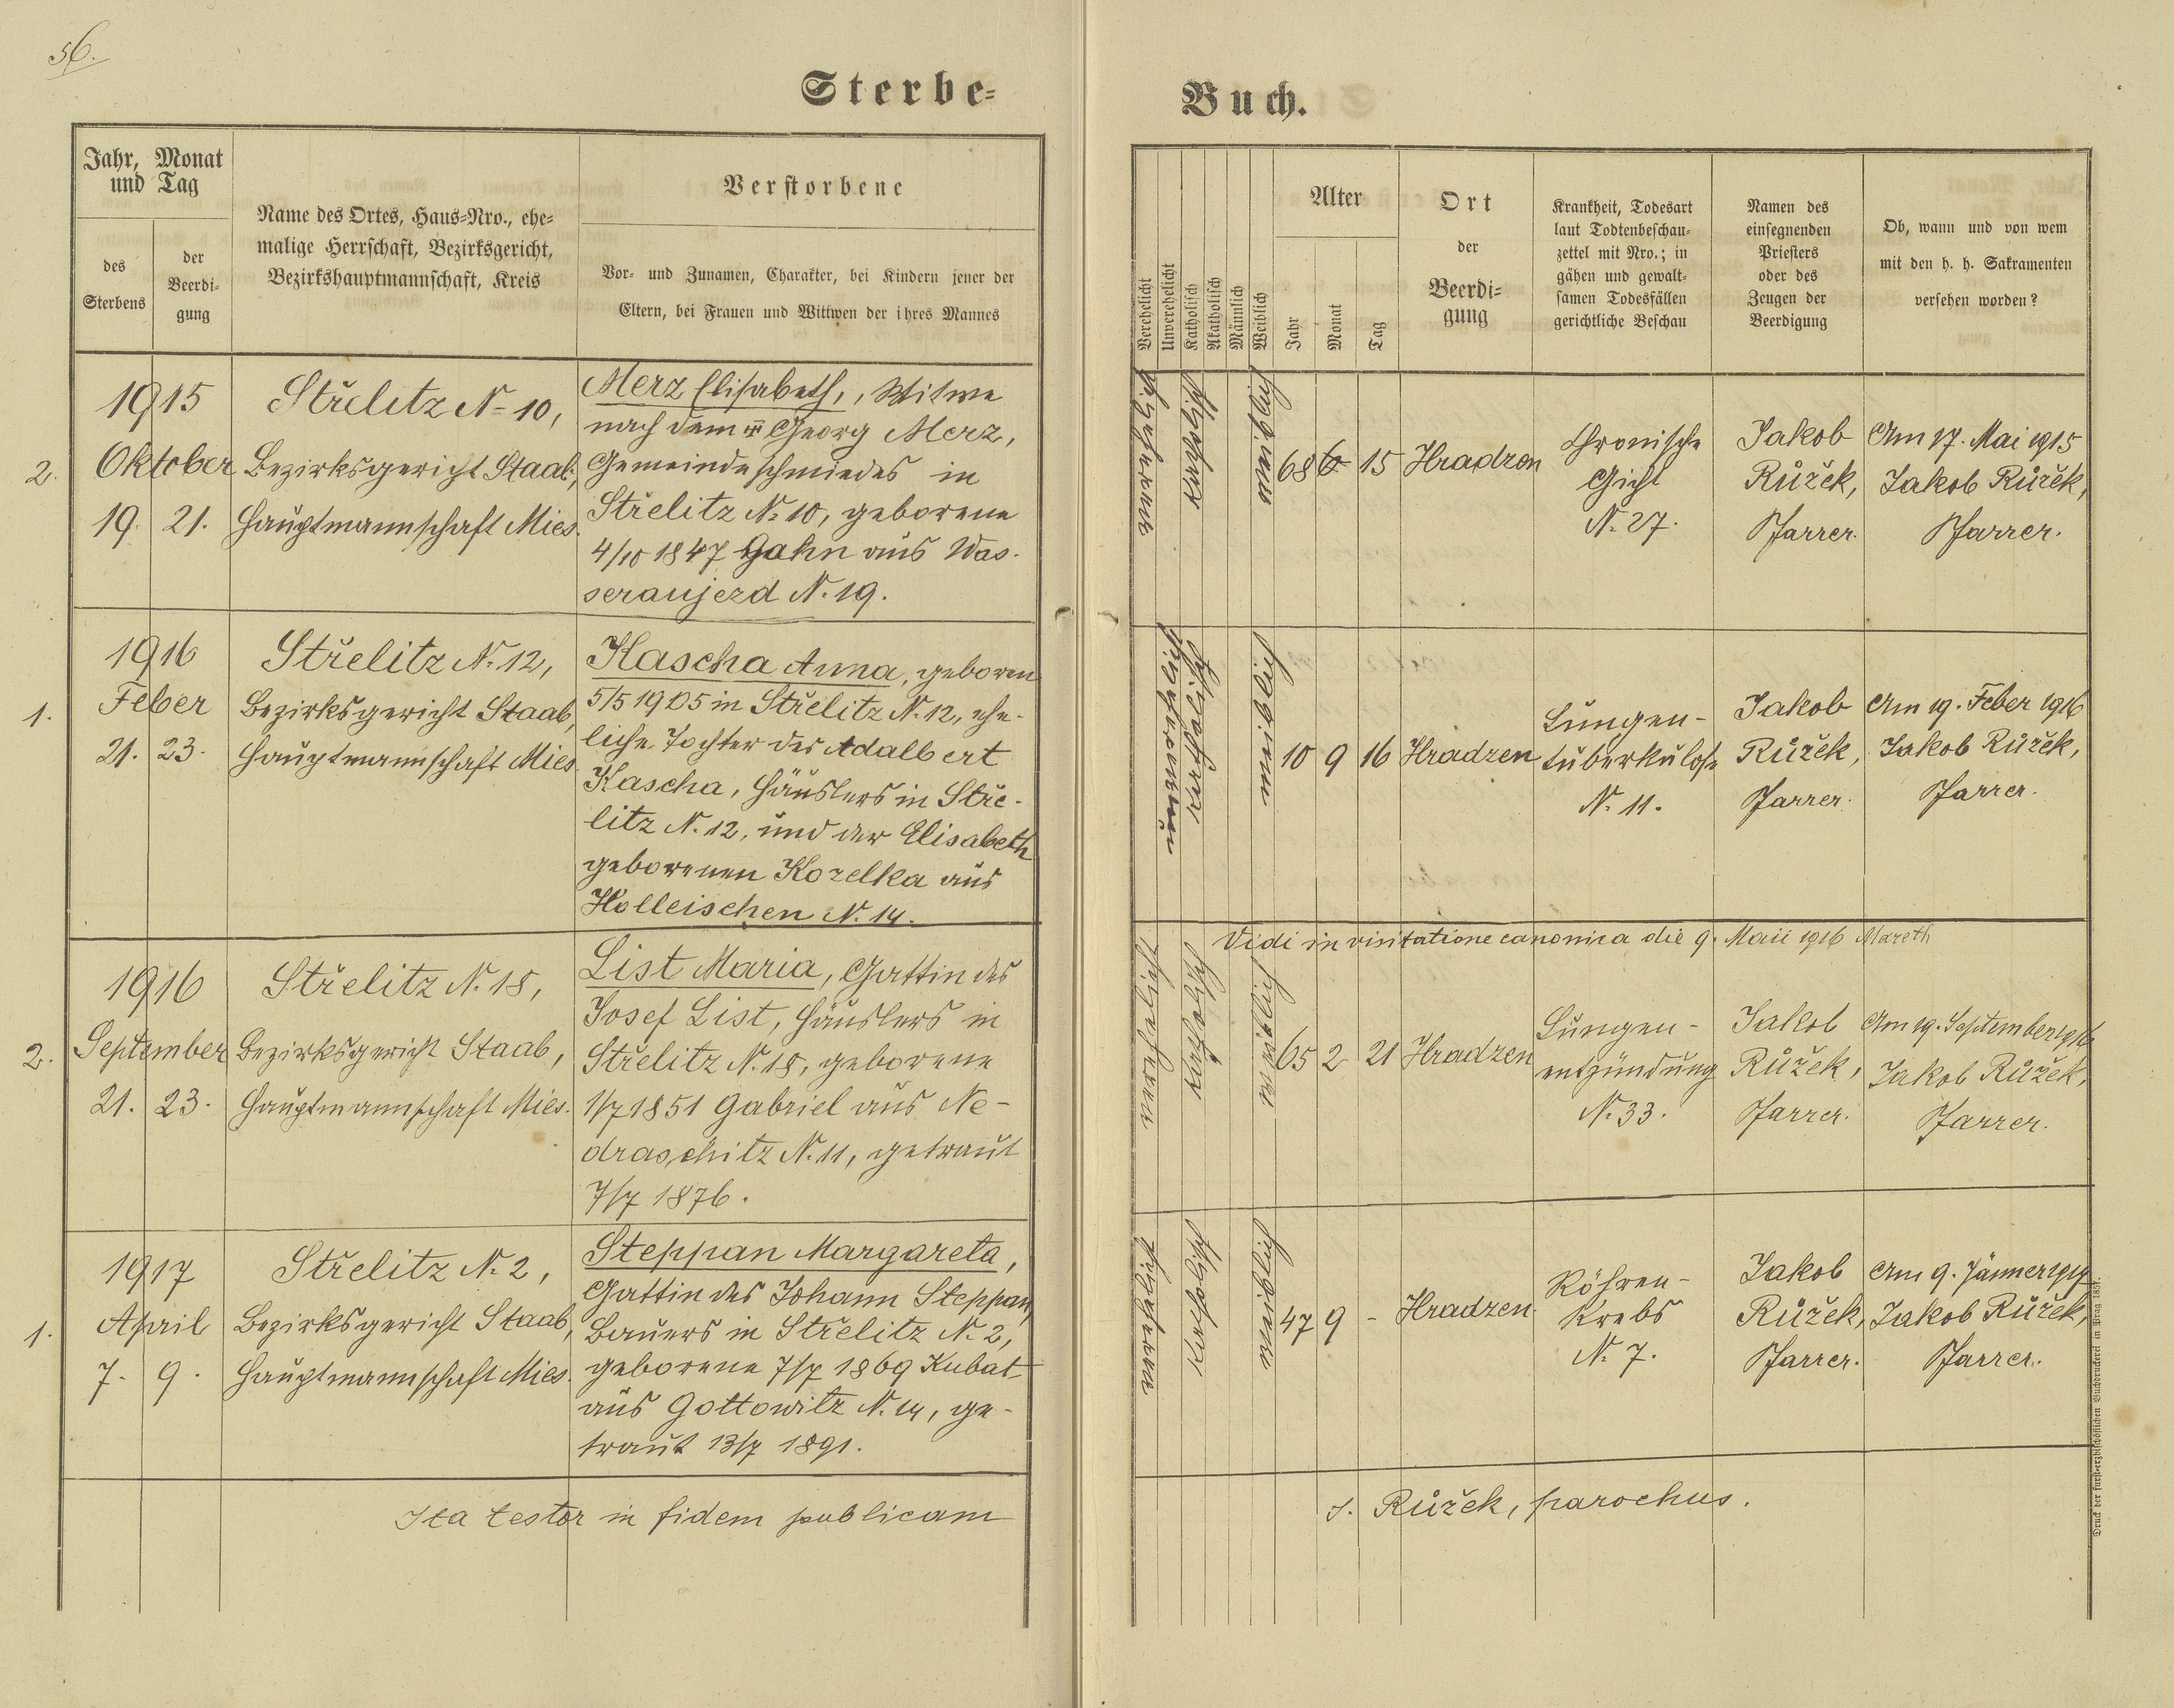 56.
Sterbe-
Buch.
Jahr, Monat
und Tag
des
Sterbens
der
Beerdi-
gung
Name des Ortes, Haus-Nro., ehe-
malige Herrschaft, Bezirksgericht,
Bezirkshauptmannschaft, Kreis
Verstorbene
Vor- und Zunamen, Charakter, bei Kindern jener der
Eltern, bei Frauen und Wittwen der ihres Mannes
Verehelicht
Unverehelicht
Katholisch
Akatholisch
Männlich
Weiblich
Alter
Jahr
Monat
Tag
Ort
der
Beerdi-
gung
Krankheit, Todesart
laut Todtenbeschau-
zettel mit Nro.; in
gähen und gewalt-
samen Todesfällen
gerichtliche Beschau
Namen des
einsegnenden
Priesters
oder des
Zeugen der
Beerdigung
Ob, wann und von wem
mit den h. h. Sakramenten
versehen worden?
2.
1915
Oktober
19. 21.
Střelitz N. 10,
Bezirksgericht Staab,
Hauptmannschaft Mies.
Merz Elisabeth, Witwe
nach dem Georg Merz,
Gemeindeschmiedes in
Střelitz N. 10, geborene
4/10 1847 Hahn aus Was-
seraujezd N. 19.
verehelicht
katholisch
weiblich
68 6 15
Hradzen
Chronische
Gicht
N. 27.
Jakob
Růžek,
Pfarrer.
Am 17. Mai 1915
Jakob Růžek,
Pfarrer.
1.
1916
Feber
21. 23.
Střelitz N. 12,
Bezirksgericht Staab,
Hauptmannschaft Mies.
Kascha Anna, geboren
5/5 1905 in Střelitz N. 12, ehe-
liche Tochter des Adalbert
Kascha, Häuslers in Stře-
litz N. 12, und der Elisabeth
geborenen Kozelka aus
Holleischen N. 14.
unverehelicht
katholisch
weiblich
10 9 16
Hradzen
Lungen-
tuberkulose
N. 11.
Jakob
Růžek,
Pfarrer.
Am 19. Feber 1916
Jakob Růžek,
Pfarrer.
Vidi in visitatione canonica die 9. Maii 1916
2.
1916
September
21. 23.
Střelitz N. 18,
Bezirksgericht Staab,
Hauptmannschaft Mies.
List Maria, Gattin des
Josef List, Häuslers in
Střelitz N. 18, geborene
1/7 1851 Gabriel aus Ne-
draschitz N. 11, getraut
7/7 1876.
verehelicht
katholisch
weiblich
65 2 21
Hradzen
Lungen-
entzündung
N. 33.
Jakob
Růžek,
Pfarrer.
Am 19. September 1916
Jakob Růžek,
Pfarrer.
1.
1917
April
7. 9.
Střelitz N. 2,
Bezirksgericht Staab,
Hauptmannschaft Mies.
Steppan Margareta,
Gattin des Johann Steppan,
Bauers in Střelitz N. 2,
geborene 7/7 1869 Kubat
aus Gottowitz N. 14, ge-
traut 13/7 1891.
verehelicht
katholisch
weiblich
47 9 -
Hradzen
Röhren-
krebs
N. 7.
Jakob
Růžek,
Pfarrer.
Am 9. Jänner 1917
Jakob Růžek,
Pfarrer.
Ita testor in fidem publicam
J. Růžek, parochus.
Druck der fürst-erzbischöflichen Buchdruckerei in Prag